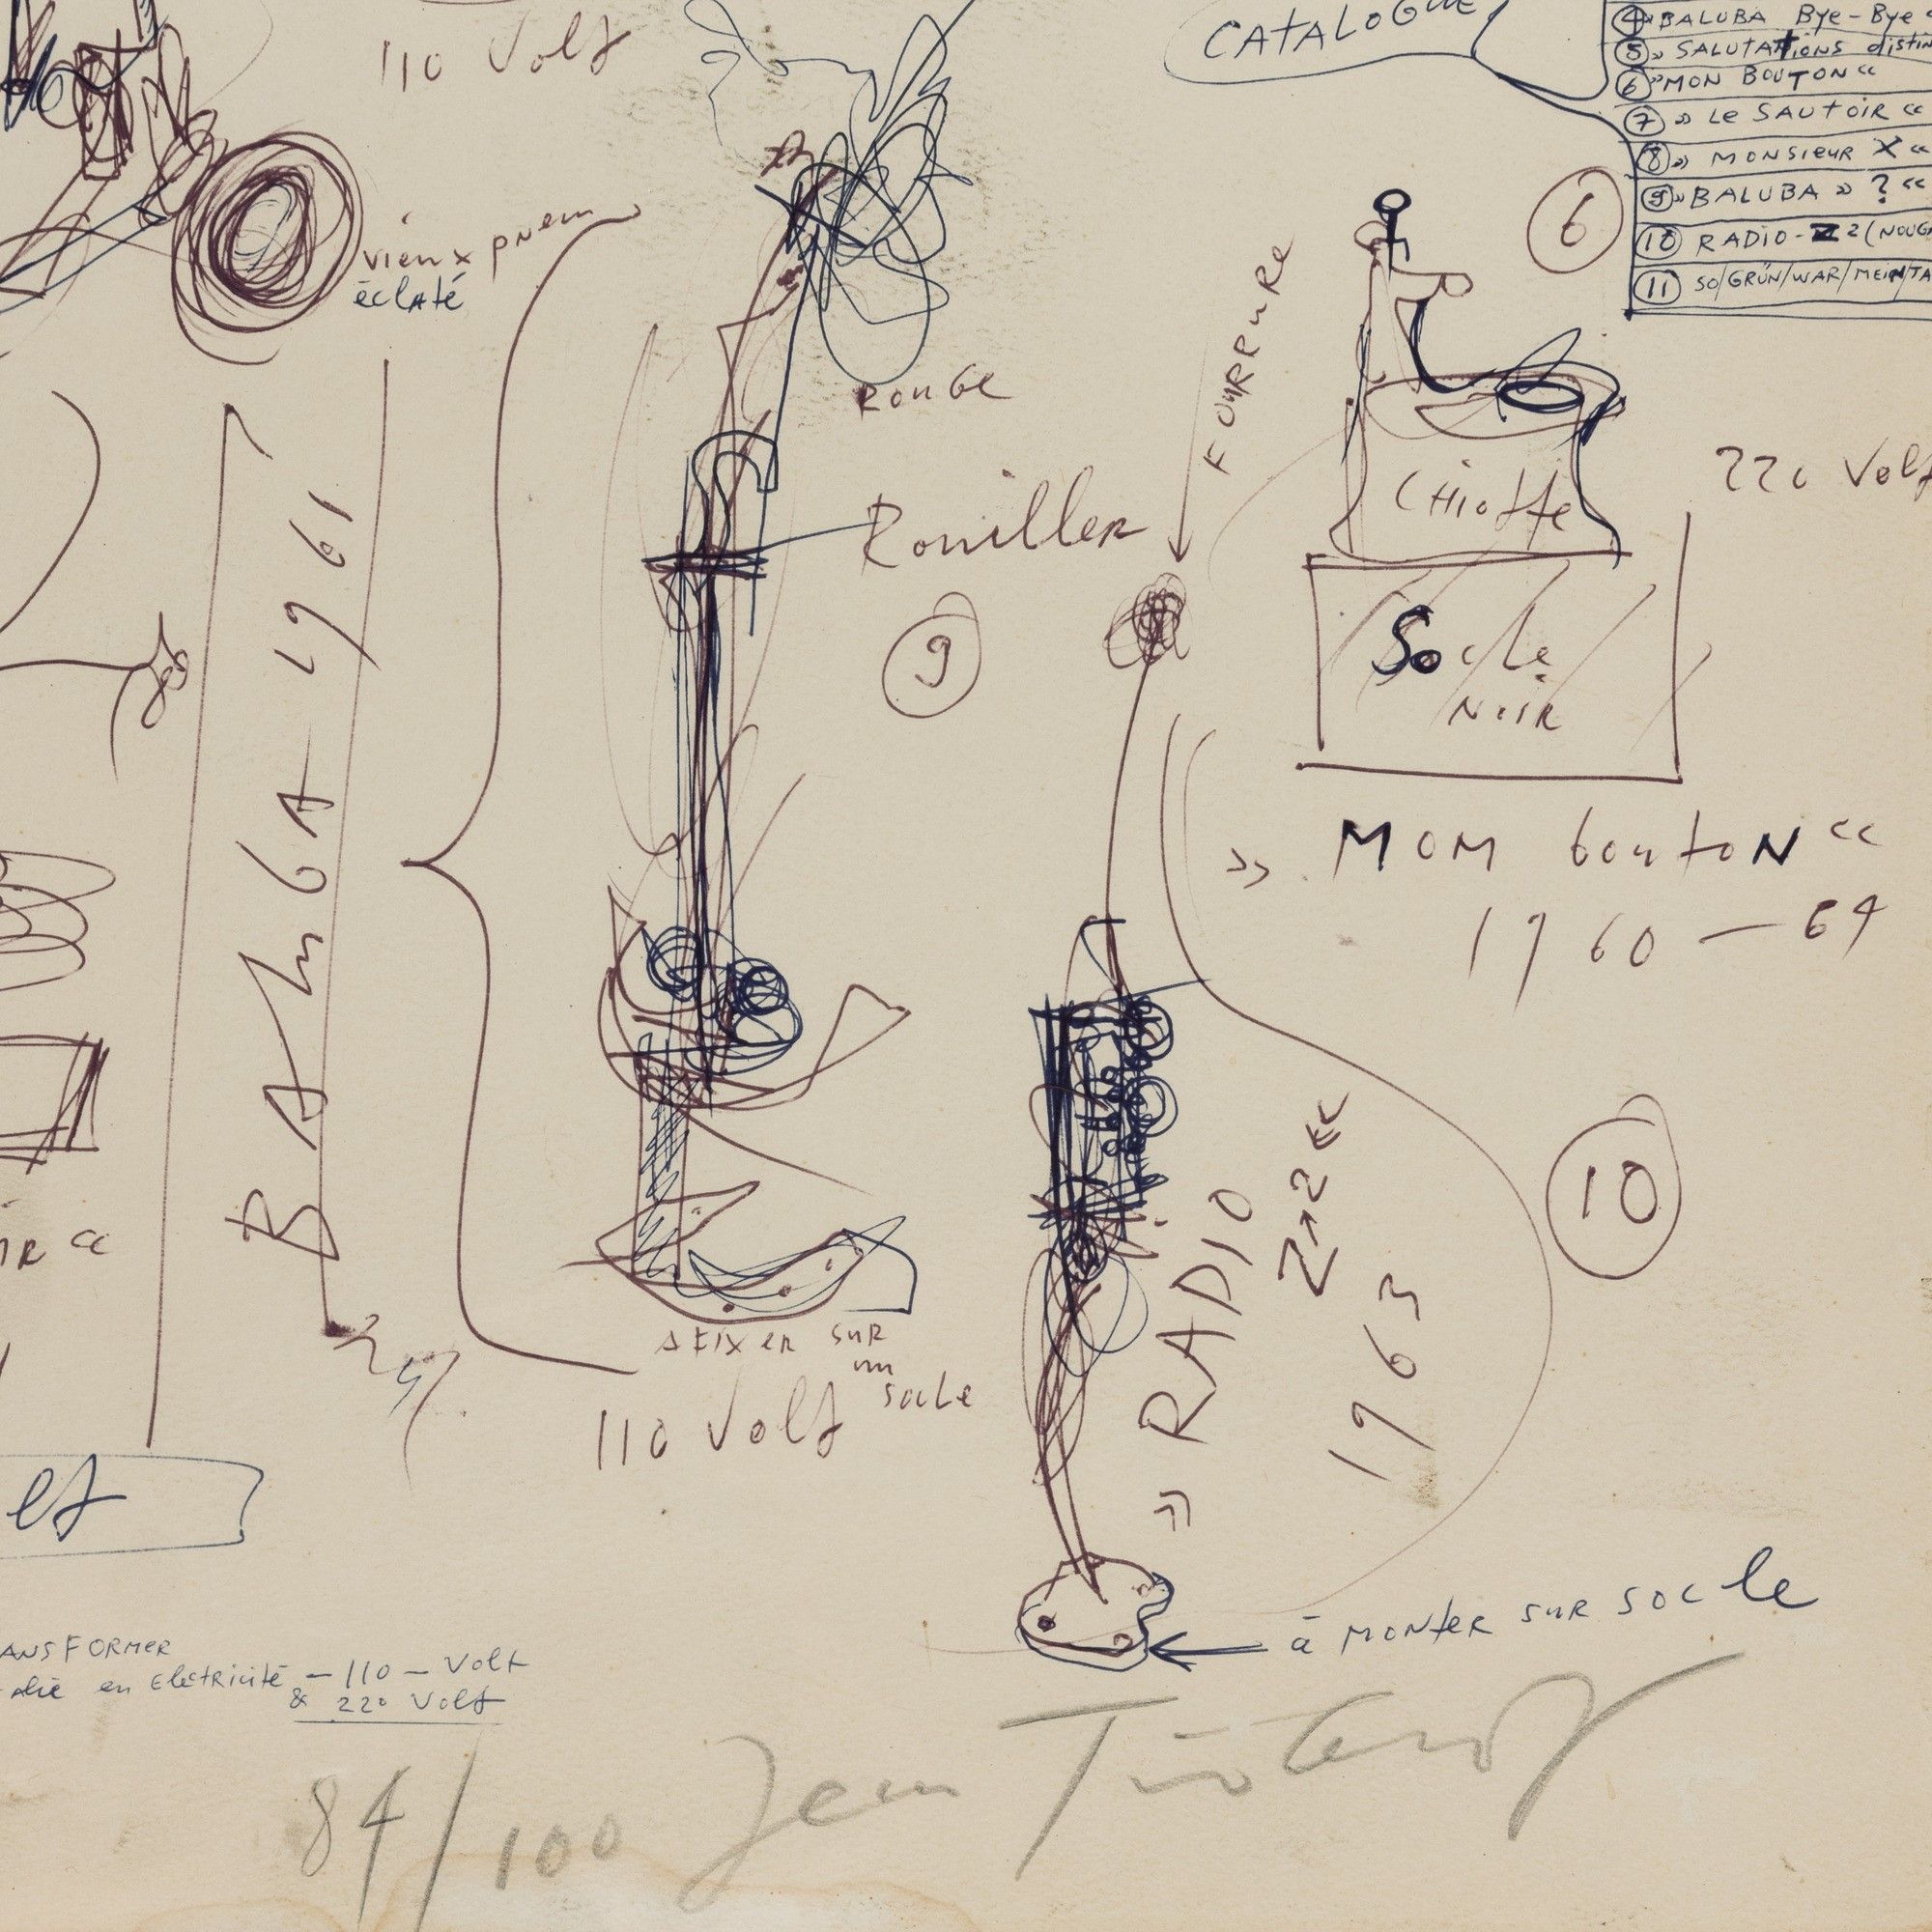 110 Volt
CATALOGUE
④ »BALUBA Bye-Bye«
⑤ »SALUTATIONS distin
⑥ »MON BOUTON«
⑦ »LE SAUTOIR«
⑧ »MONSIEUR X«
⑨ »BALUBA» ?«
⑩ RADIO-Z 2 (NOUGA
⑪ SO/GRÜN/WAR/MEIN/TA
vieux pneu
éclaté
6
FOURRURE
ROUGE
Rouiller
Chiotte
220 Volt
9
Socle
NOIR
BALUBA 1961
»MOM bouTON«
1960-64
IR«
10
»RADIO
Z→2«
1963
A FIXER SUR
un
socle
110 Volt
et
à MONTER SUR socle
ANSFORMER
en ElectRicité - 110 - Volt
& 220 Volt
84/100 Jean Tinguely